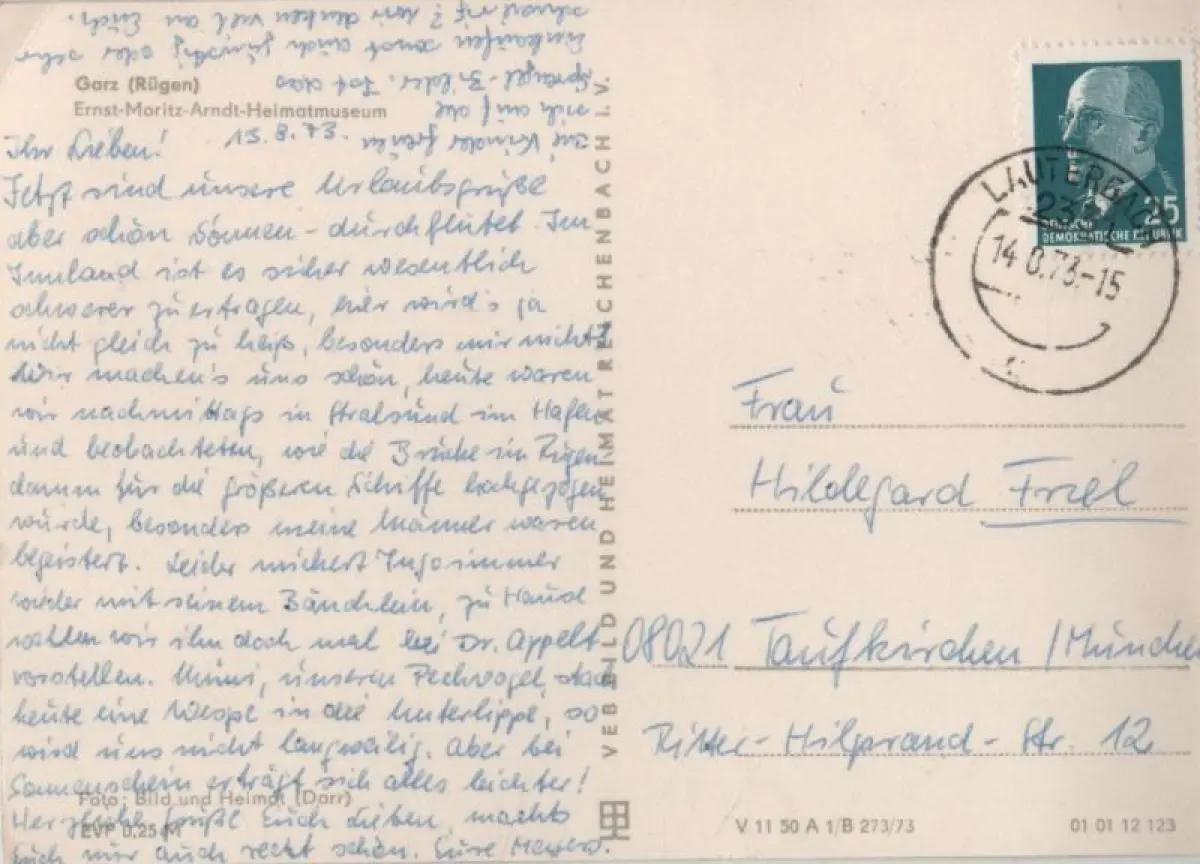 Garz (Rügen)
Ernst-Moritz-Arndt-Heimatmuseum
13.8.73.
Ihr Lieben!
Jetzt sind unsere Urlaubsgrüße
aber schön Sonnen-durchflutet. Im
Innland ist es sicher wesentlich
schwerer zu ertragen, hier wird's ja
nicht gleich zu heiß, besonders mir nicht!
Wir machen's uns schön, heute waren
wir nachmittags in Stralsund im Hafen
und beobachteten, wie die Brücke im Rügen-
damm für die größeren Schiffe hochgezogen
wurde, besonders meine Männer waren
begeistert. Leider Ingo immer
wieder mit seinem Bäuchlein, zu Haus
wollen wir ihn doch mal bei Dr. Appelt
vorstellen. unseren Pechvogel, stach
heute eine Wespe in die Unterlippe, so
wird uns nicht langweilig. Aber bei
Sonnenschein erträgt sich alles leichter!
Herzliche Grüße Euch Lieben, machts
Euch nur auch recht schön. Eure
Die Kinder freuen
sich auf die
Spengel-Bilder. Ist das
Einkaufen sonst auch günstig oder sehr
schwierig? Wir denken viel an Euch.
Foto: Bild und Heimat (Darr)
EVP 0,25 M
VEB BILD UND HEIMAT REICHENBACH I. V.
LAUTERBACH
14.8.73.-15
25
DEUTSCHE
DEMOKRATISCHE REPUBLIK
Frau
Hildegard Friel
08021 Taufkirchen /München
Ritter-Hilprand-Str. 12
V 11 50 A 1/B 273/73
01 01 12 123